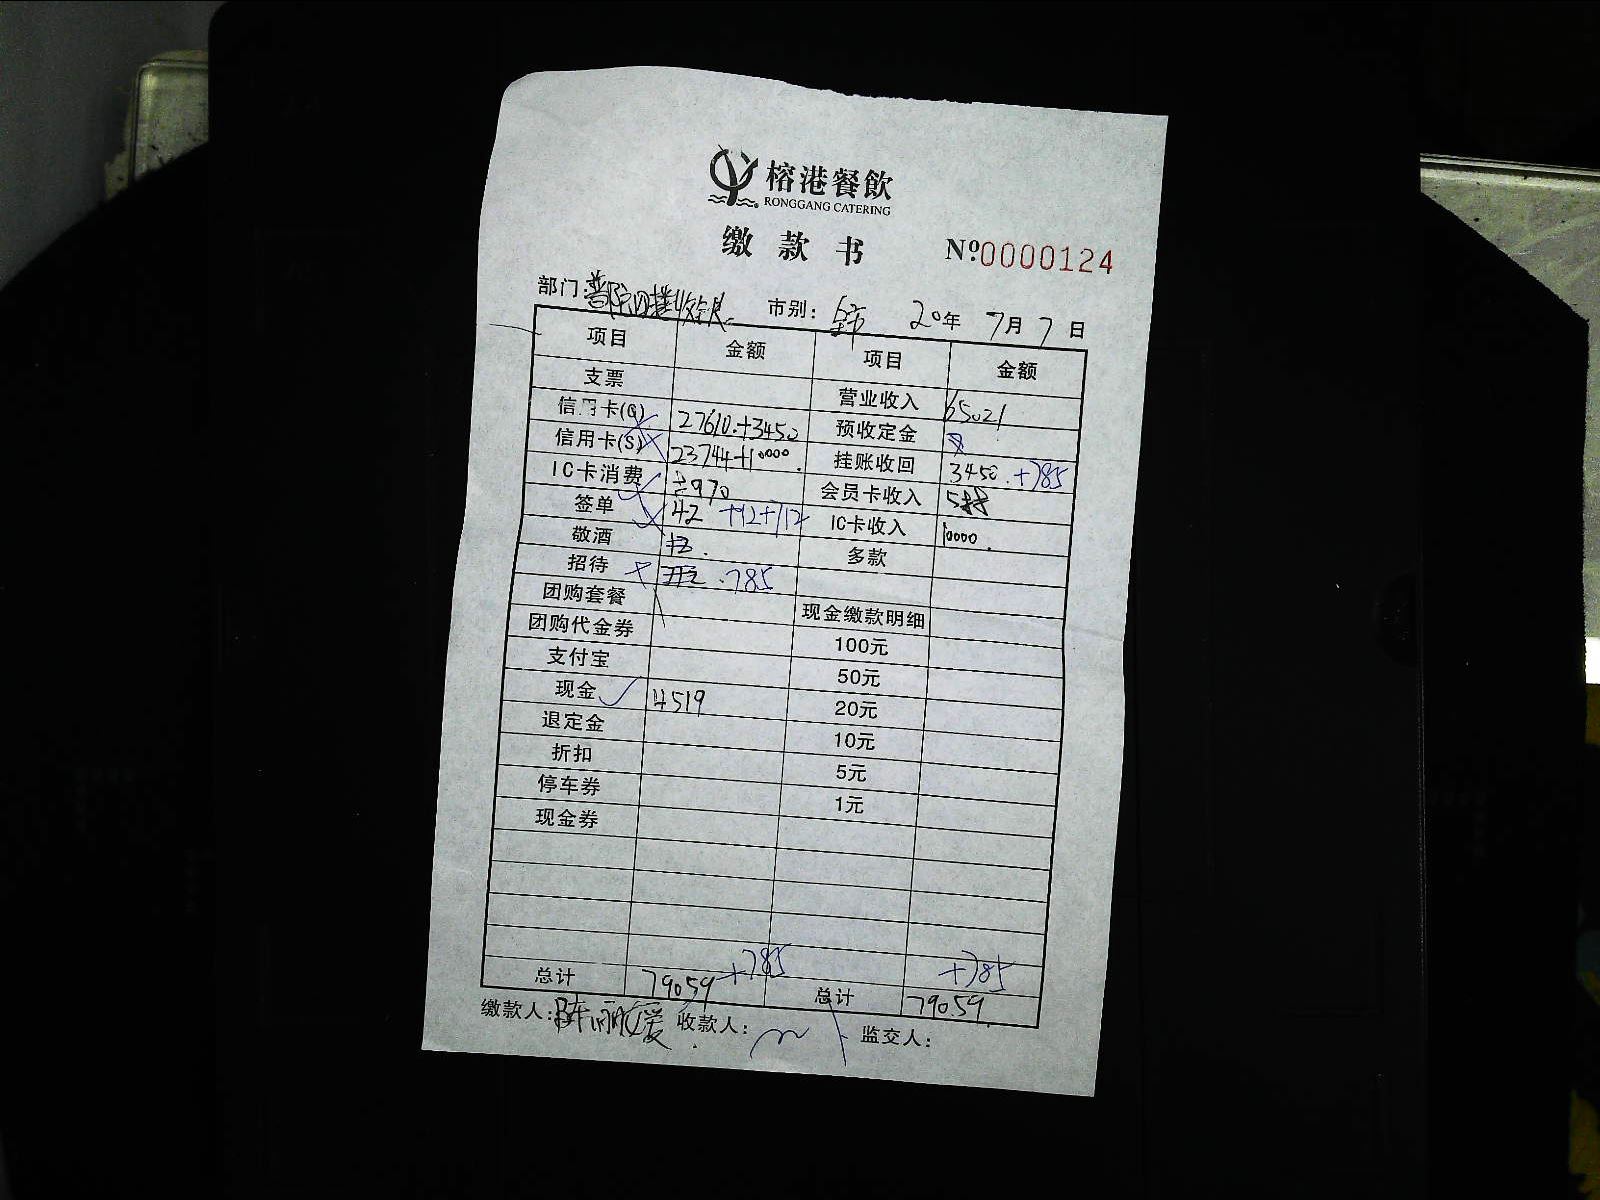 榕港餐飲
RONGGANG CATERING
缴 款 书 Nº0000124
部门: 市别: 全市 20年 7月 7日
项目 金额 项目 金额
支票 营业收入 65021
信用卡(G) 27610.+3450 预收定金
信用卡(S) 23744+10000. 挂账收回 3450.+785
IC卡消费 970 会员卡收入 588
签单 42 +92+112 IC卡收入 10000.
敬酒 多款
招待 .785
团购套餐 现金缴款明细
团购代金券 100元
支付宝 50元
现金 4519 20元
退定金 10元
折扣 5元
停车券 1元
现金券
+785 +785
总计 79059 总计 79059.
缴款人:陈丽爱 收款人: 监交人: